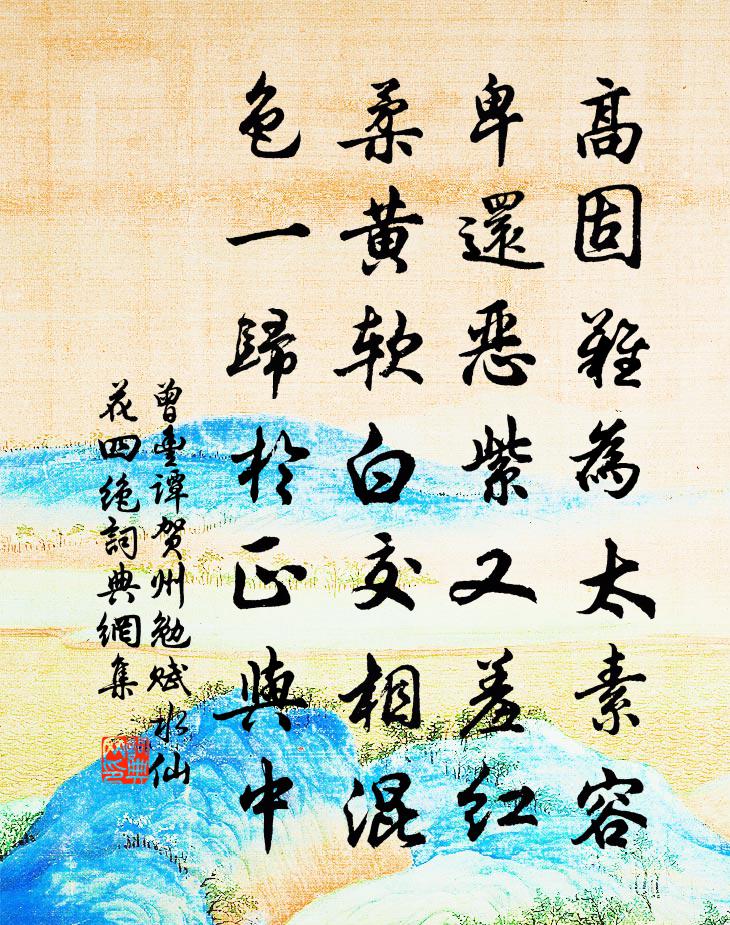 高固難為太素容
卑還惡紫又羞紅
柔黄软白交相混
色一歸於正與中
曾豊譚賀州勉賦水仙
花四絶詞典網集